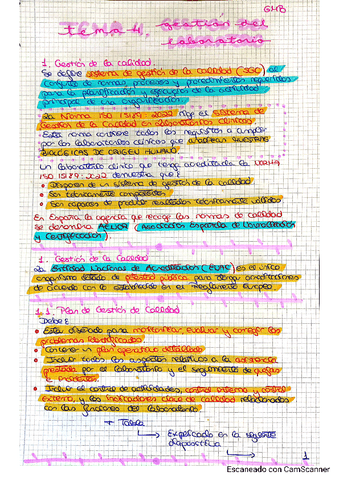 GMB
Tema 4. Gestión del
Laboratorio
1. Gestión de la calidad.
Se define sistema de gestión de la calidad (SGC) al
conjunto de normas, procesos y procedimientos requeridos
para la planificación y ejecución de la actividad
principal de una organización.
La Norma ISO 15189:2022 rige el sistema de
Gestión de la Calidad en laboratorios clínicos
Esta norma contiene todos los requisitos a cumplir
por los laboratorios clínicos que analizan muestras
BIOLÓGICAS DE ORIGEN HUMANO.
Un laboratorio clínico que tenga acreditada la norma
ISO 15189:2022 demuestra que:
• Disponen de un sistema de gestión de la calidad.
• Son técnicamente competentes.
• Son capaces de producir resultados técnicamente válidos
En España la agencia que recoge las normas de calidad
se denomina AENOR (Asociación Española de Normalización
y Certificación).
1. Gestión de la Calidad
La Entidad Nacional de Acreditación (ENAC) es el único
organismo dotado de potestad pública para otorgar acreditaciones
de acuerdo con lo establecido en el Reglamento Europeo.
1.1. Plan de Gestión de Calidad.
Debe:
• Estar diseñado para monitorizar, evaluar y corregir los
problemas identificados.
• Contener un plan operativo detallado
• Incluir todos los aspectos relativos a la asistencia
prestada por el laboratorio y el seguimiento de quejas
e incidentes.
• Incluir el control de actividades, control interno y control
externo, y los indicadores clave de calidad relacionados
con las funciones del laboratorio
+ Tabla
Explicado en la siguiente
diapositiva
1
Escaneado con CamScanner